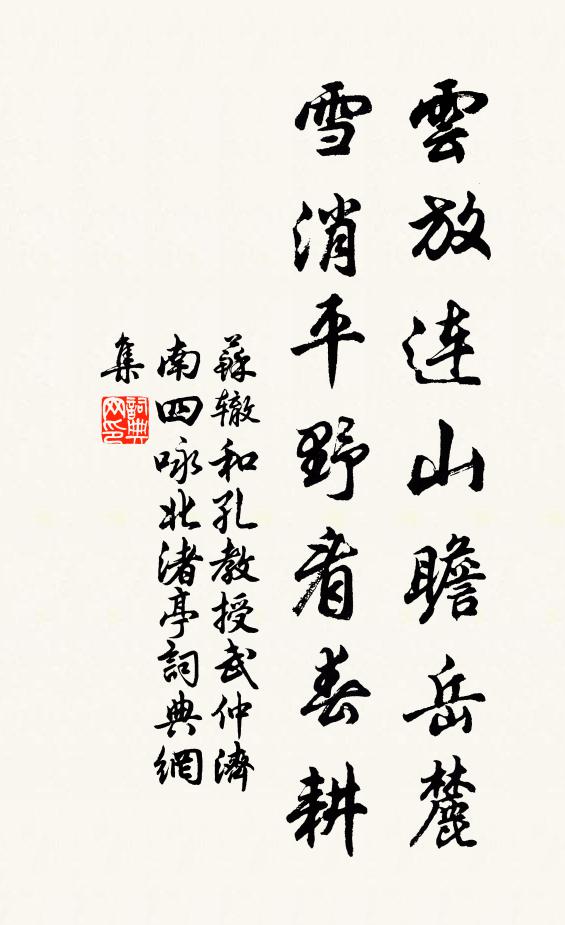 雲放連山瞻岳麓
雪消平野看春耕
蘇辙和孔教授武仲濟
南四咏北渚亭詞典網
集
詞典
网印